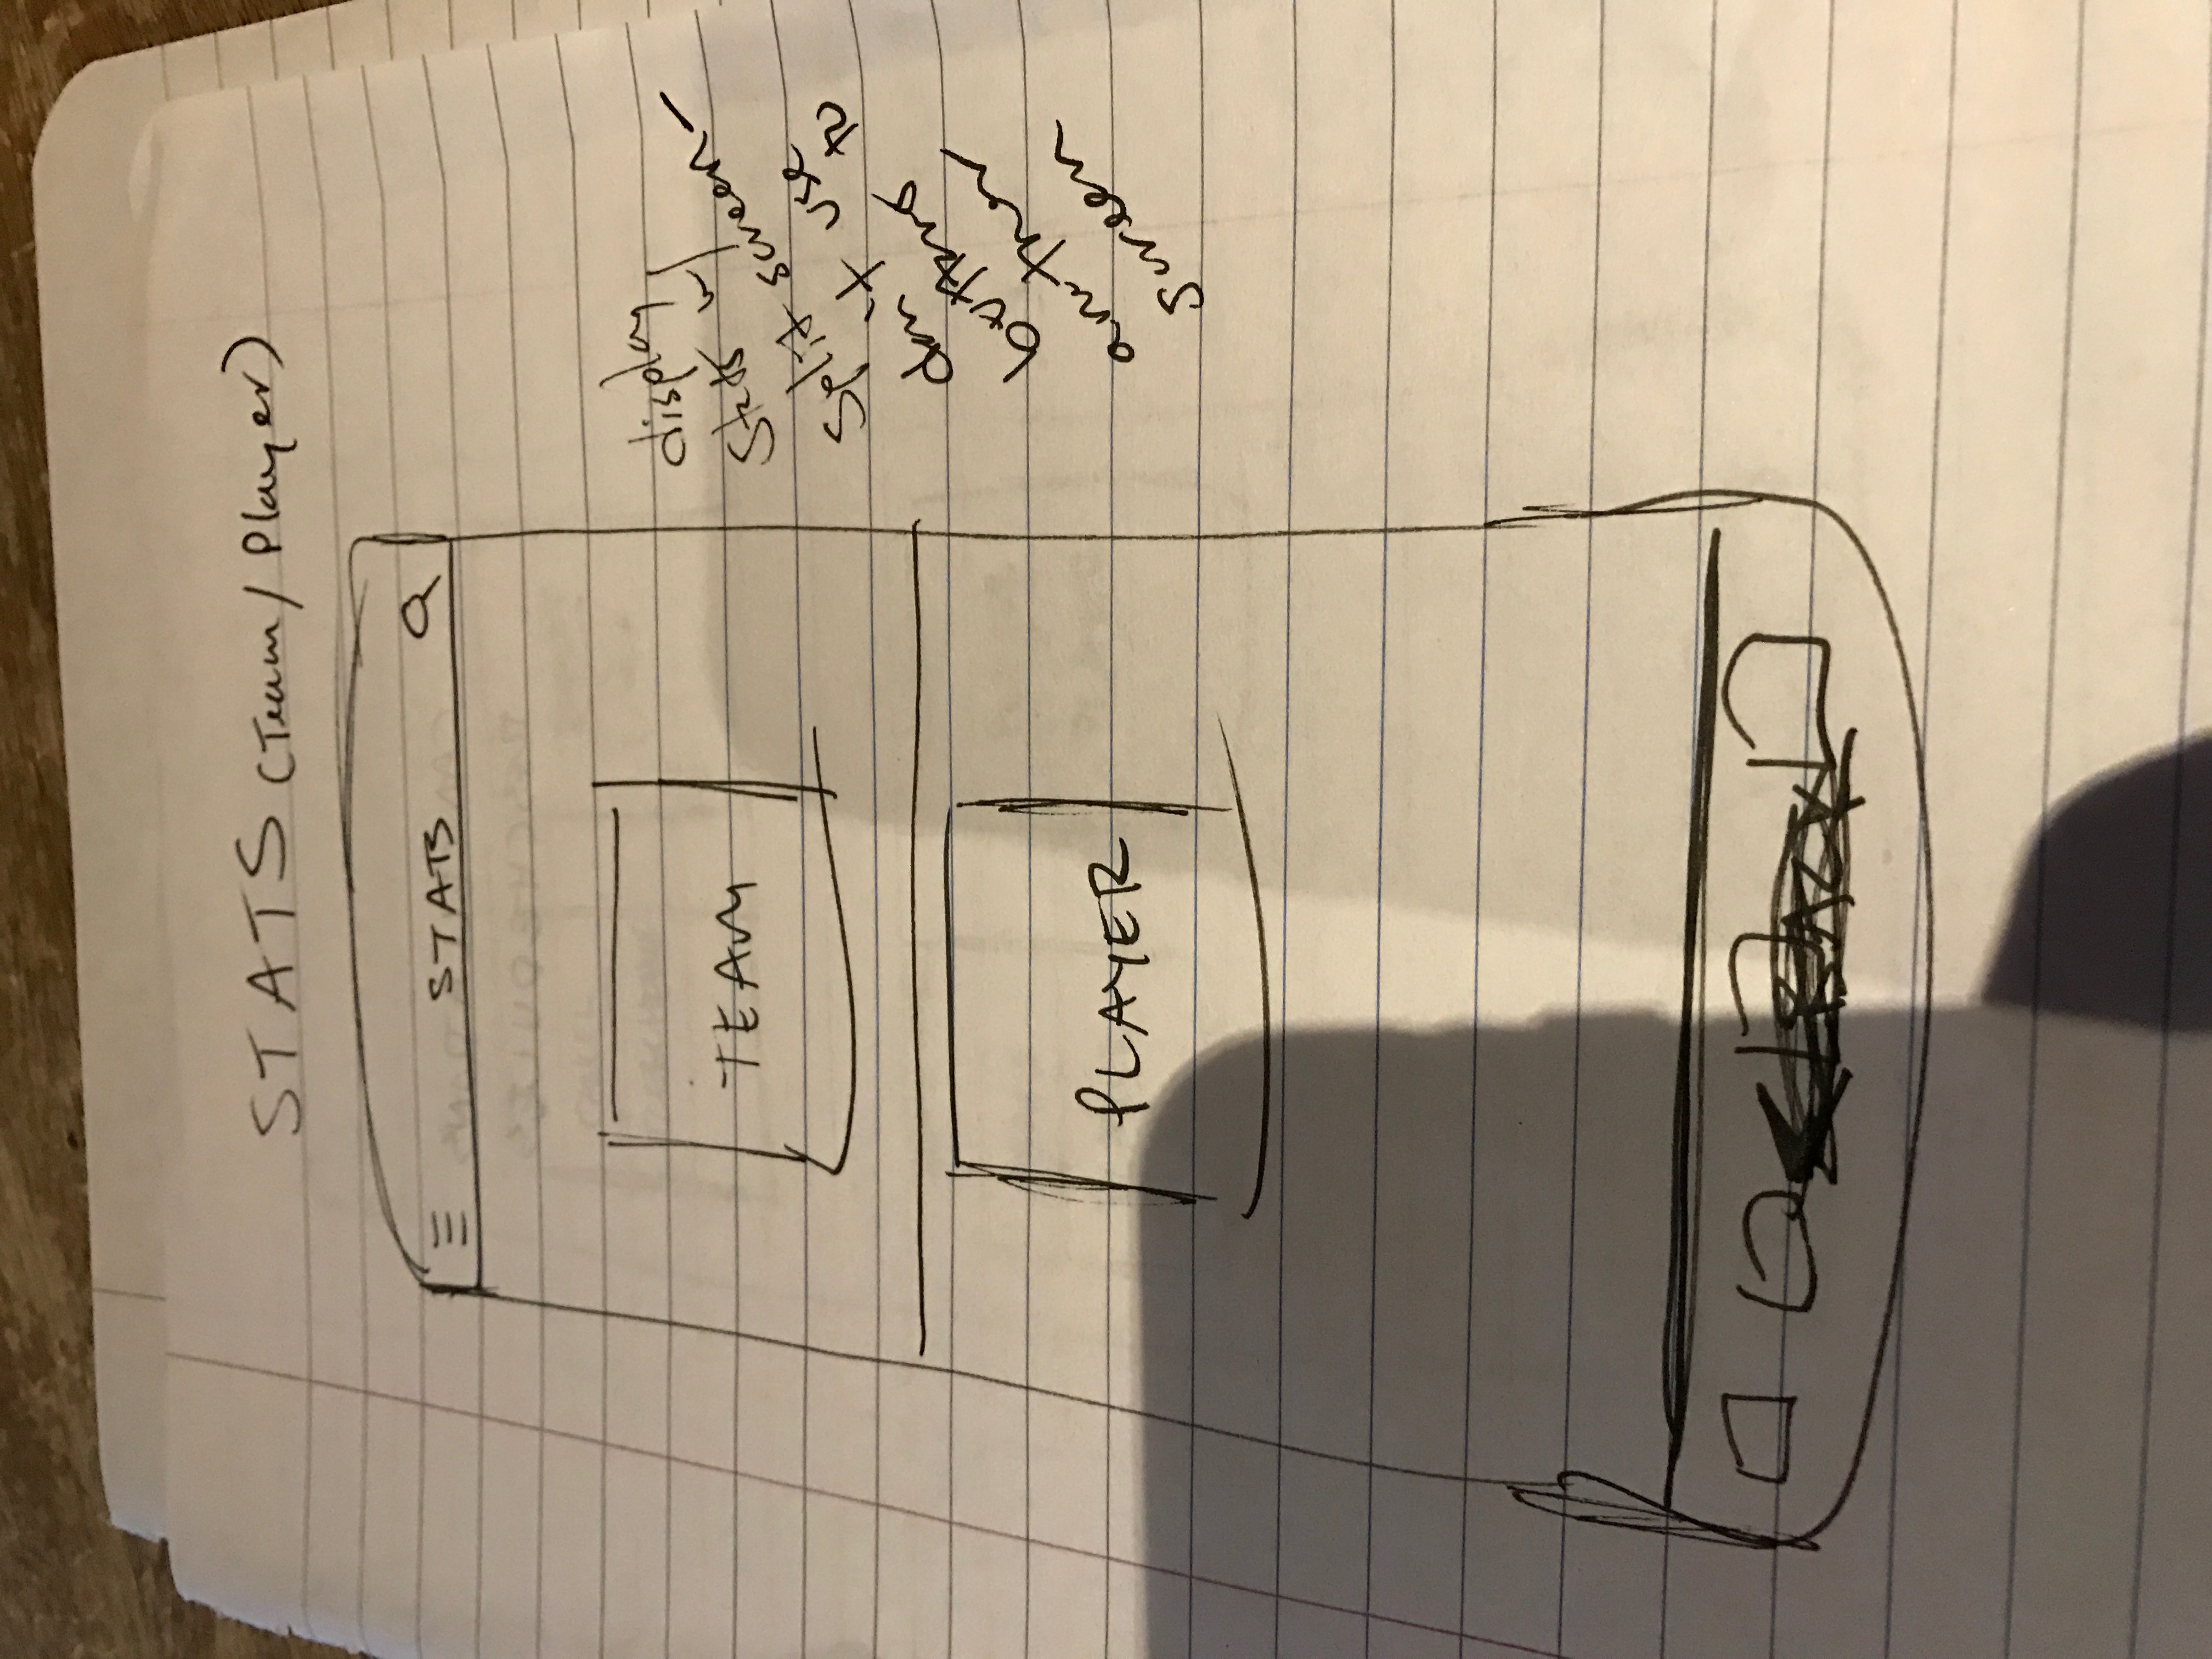 STATS (Team / Player)
STATS
TEAM
PLAYER
display
Stats w/
split screen -
don't use
buttons to
another
screen
BACK